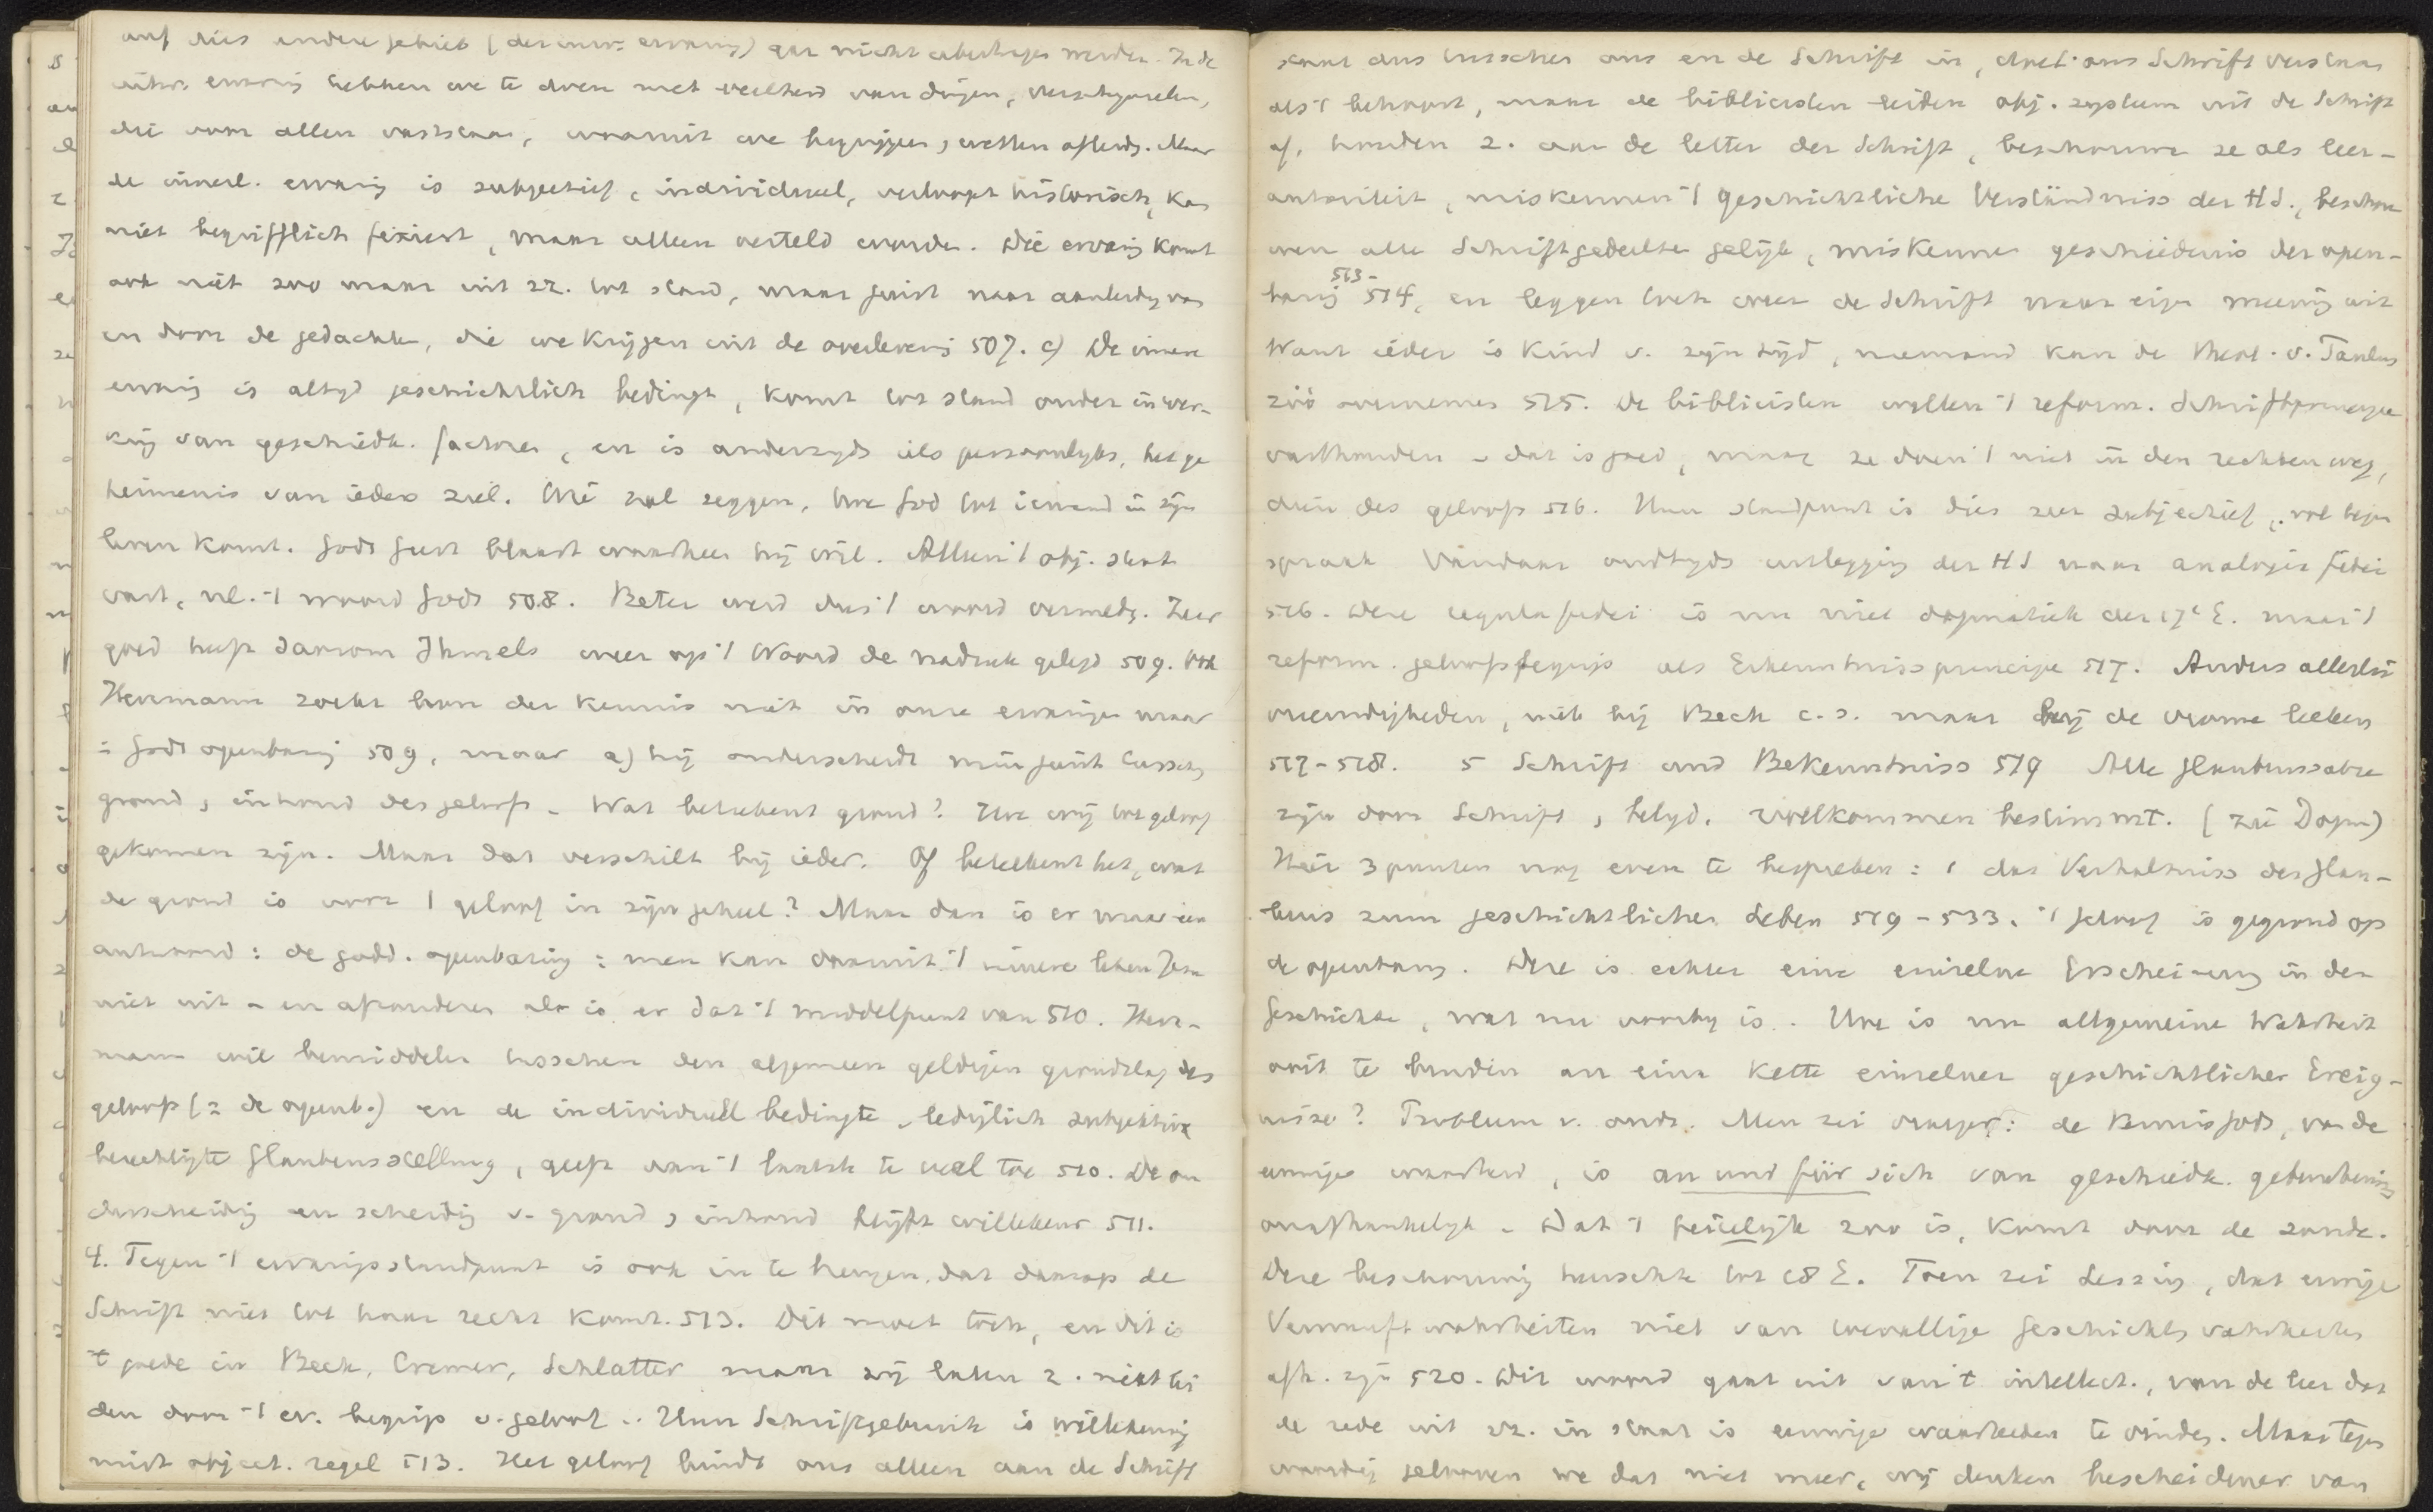 auf dies andere gebied (der inw. ervaring) gar nicht übertragen werden. In de
uitw. ervaring hebben we te doen met veelheid van dingen, verschijnselen,
die voor allen vaststaan, waaruit we begrippen, wetten afleiden. Maar
de innerl. ervaring is subjectief, individueel, verloopt historisch, kan
niet begrifflich fixiert, maar alleen verteld worden. Die ervaring komt
ook niet zoo maar uit zz. tot stand, maar juist naar aanleiding van
en door de gedachte, die we krijgen uit de overlevering 507. c) De innere
ervaring is altijd geschichtlich bedingt, komt tot stand onder inwer-
king van geschiedk. factoren, en is anderzyds iets persoonlyks, het ge
heimenis van ieders ziel. Wie zal zeggen, hoe God tot iemand in zijn
leven komt. Gods Geest blaast waarheen hij wil. Alleen 't obj. staat
vast, nl. 't woord Gods 508. Beter werd dus 't woord vermeden. Zeer
goed heeft daarom Ihmels weer op 't Woord de nadruk gelegd 509. Ook
Herrmann zoekt bron der kennis niet in onze ervaringen maar
in Gods openbaring 509, maar a) hij onderscheidt niet juist tusschen
grond, inhoud des geloofs - Wat beteekent grond? Hoe wij tot geloof
gekomen zijn. Maar dat verschilt bij ieder. Of beteekent het, wat
de grond is voor 't geloof in zijn geheel? Maar dan is er maar een
antwoord: de godd. openbaring: men kan daaruit 't innere leben Jesu
niet uit - en afzonderen als is er dat 't middelpunt van 510. Herr-
mann wil bemiddelen tusschen den algemeen geldigen grondslag des
geloofs (= de openb.) en de individuell bedingte, lediglich subjektive
berechtigte Glaubensstellung, geeft aan 't laatste te veel toe 510. De on
derscheiding en scheiding v. grond, inhoud blijft willekeur 511.
4. Tegen 't ervaringsstandpunt is ook in te brengen, dat daarop de
Schrift niet tot haar recht komt. 513. Dit moet toch, en dit is
't goede in Beck, Cremer, Schlatter maar zij laten z. niet lei
den door 't ev. begrip v. geloof .. Hun Schriftgebruik is willekeurig
mist object. regel 513. Het geloof bindt ons alleen aan de Schrift
staat dus tusschen ons en de Schrift in, doet ons Schrift verstaan
als 't behoort, maar de biblicisten leiden obj. systeem uit de Schrift
af, houden z. aan de letter der Schrift, beschouwen ze als leer-
autoriteit, miskennen 't geschichtliche Verständniss der H S., beschou
wen alle Schriftgedeelten gelijk, miskennen geschiedenis der open-
baring 513-514, en leggen toch weer de Schrift naar eigen meening uit
Want ieder is kind v. zijn tijd, niemand kan de theol. v. Paulus
zóó overnemen 515. De biblicisten willen 't reform. Schriftprincipe
vasthouden - dat is goed, maar ze doen 't niet in den rechten weg,
dien des geloofs 516. Hun standpunt is dus zeer subjectief, vol tegen
spraak Vandaar oudtijds uitlegging der H S naar analogia fidei
516. Deze regula fidei is nu niet dogmatiek der 17e E. maar 't
reform. geloofsbegrip als Erkenntnissprincipe 517. Anders allerlei
vreemdigheden, niet bij Beck c.s. maar bij de vrome leeken
517-518. 5 Schrift und Bekenntniss 519 Alle Glaubenssätze
zijn door Schrift, belyd. vollkommen bestimmt. (zie Dogm)
Hier 3 punten nog even te bespreken: 1 das Verhältniss des Glau-
bens zum geschichtlichen Leben 519-533. 't geloof is gegrond op
de openbaring. Deze is echter eine einzelne Erscheinung in der
Geschichte, wat nu voorby is. Hoe is nu allgemeine Wahrheit
ooit te binden an eine Kette einzelner geschichtlicher Ereig-
nisse? Probleem v. ouds. Men zei vroeger: de kennis Gods, van de
eeuwige waarheid, is an und für sich van geschiedk. gebeurtenis
onafhankelijk - Dat 't feitelijk zoo is, komt door de zonde.
Deze beschouwing heerschte tot 18 E. Toen zei Lessing, dat eeuwige
Vernunftwahrheiten niet van toevallige Geschichtswahrheiten
afh. zijn 520. Dit woord gaat uit van 't intellect., van de leer dat
de rede uit zz. in staat is eeuwige waarheden te vinden. Maar tegen
woordig gelooven we dat niet meer, wij denken bescheidener van